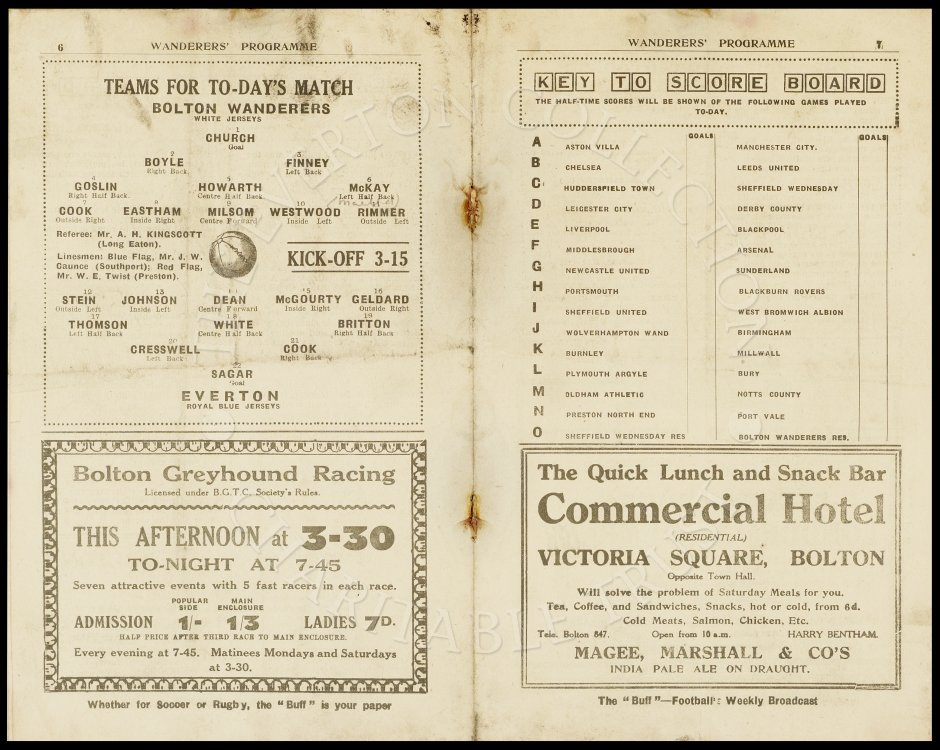 6 WANDERERS' PROGRAMME
TEAMS FOR TO-DAY'S MATCH
BOLTON WANDERERS
WHITE JERSEYS
1
CHURCH
Goal
2 3
BOYLE FINNEY
Right Back Left Back
4 5 6
GOSLIN HOWARTH McKAY
Right Half Back Centre Half Back Left Half Back
7 8 9 10 11
COOK EASTHAM MILSOM WESTWOOD RIMMER
Outside Right Inside Right Centre Forward Inside Left Outside Left
Referee: Mr. A. H. KINGSCOTT
(Long Eaton).
Linesmen: Blue Flag, Mr. J. W.
Gaunce (Southport); Red Flag,
Mr. W. E. Twist (Preston).
KICK-OFF 3-15
12 13 14 15 16
STEIN JOHNSON DEAN McGOURTY GELDARD
Outside Left Inside Left Centre Forward Inside Right Outside Right
17 18 19
THOMSON WHITE BRITTON
Left Half Back Centre Half Back Right Half Back
20 21
CRESSWELL COOK
Left Back Right Back
22
SAGAR
Goal
EVERTON
ROYAL BLUE JERSEYS
Bolton Greyhound Racing
Licensed under B.G.T.C. Society's Rules.
THIS AFTERNOON at 3-30
TO-NIGHT AT 7-45
Seven attractive events with 5 fast racers in each race.
POPULAR MAIN
SIDE ENCLOSURE
ADMISSION 1/- 1/3 LADIES 7D.
HALF PRICE AFTER THIRD RACE TO MAIN ENCLOSURE.
Every evening at 7-45. Matinees Mondays and Saturdays
at 3-30.
Whether for Soccer or Rugby, the "Buff" is your paper
WANDERERS' PROGRAMME 7
KEY TO SCORE BOARD
THE HALF-TIME SCORES WILL BE SHOWN OF THE FOLLOWING GAMES PLAYED
TO-DAY.
GOALS GOALS
A ASTON VILLA MANCHESTER CITY.
B CHELSEA LEEDS UNITED
C HUDDERSFIELD TOWN SHEFFIELD WEDNESDAY
D LEICESTER CITY DERBY COUNTY
E LIVERPOOL BLACKPOOL
F MIDDLESBROUGH ARSENAL
G NEWCASTLE UNITED SUNDERLAND
H PORTSMOUTH BLACKBURN ROVERS
I SHEFFIELD UNITED WEST BROMWICH ALBION
J WOLVERHAMPTON WAND BIRMINGHAM
K BURNLEY MILLWALL
L PLYMOUTH ARGYLE BURY
M OLDHAM ATHLETIC NOTTS COUNTY
N PRESTON NORTH END PORT VALE
O SHEFFIELD WEDNESDAY RES BOLTON WANDERERS RES.
The Quick Lunch and Snack Bar
Commercial Hotel
(RESIDENTIAL)
VICTORIA SQUARE, BOLTON
Opposite Town Hall.
Will solve the problem of Saturday Meals for you.
Tea, Coffee, and Sandwiches, Snacks, hot or cold, from 6d.
Cold Meats, Salmon, Chicken, Etc.
Tele. Bolton 847. Open from 10 a.m. HARRY BENTHAM.
MAGEE, MARSHALL & CO'S
INDIA PALE ALE ON DRAUGHT.
The "Buff"—Football's Weekly Broadcast
THE EVERTON COLLECTION
CHARITABLE TRUST